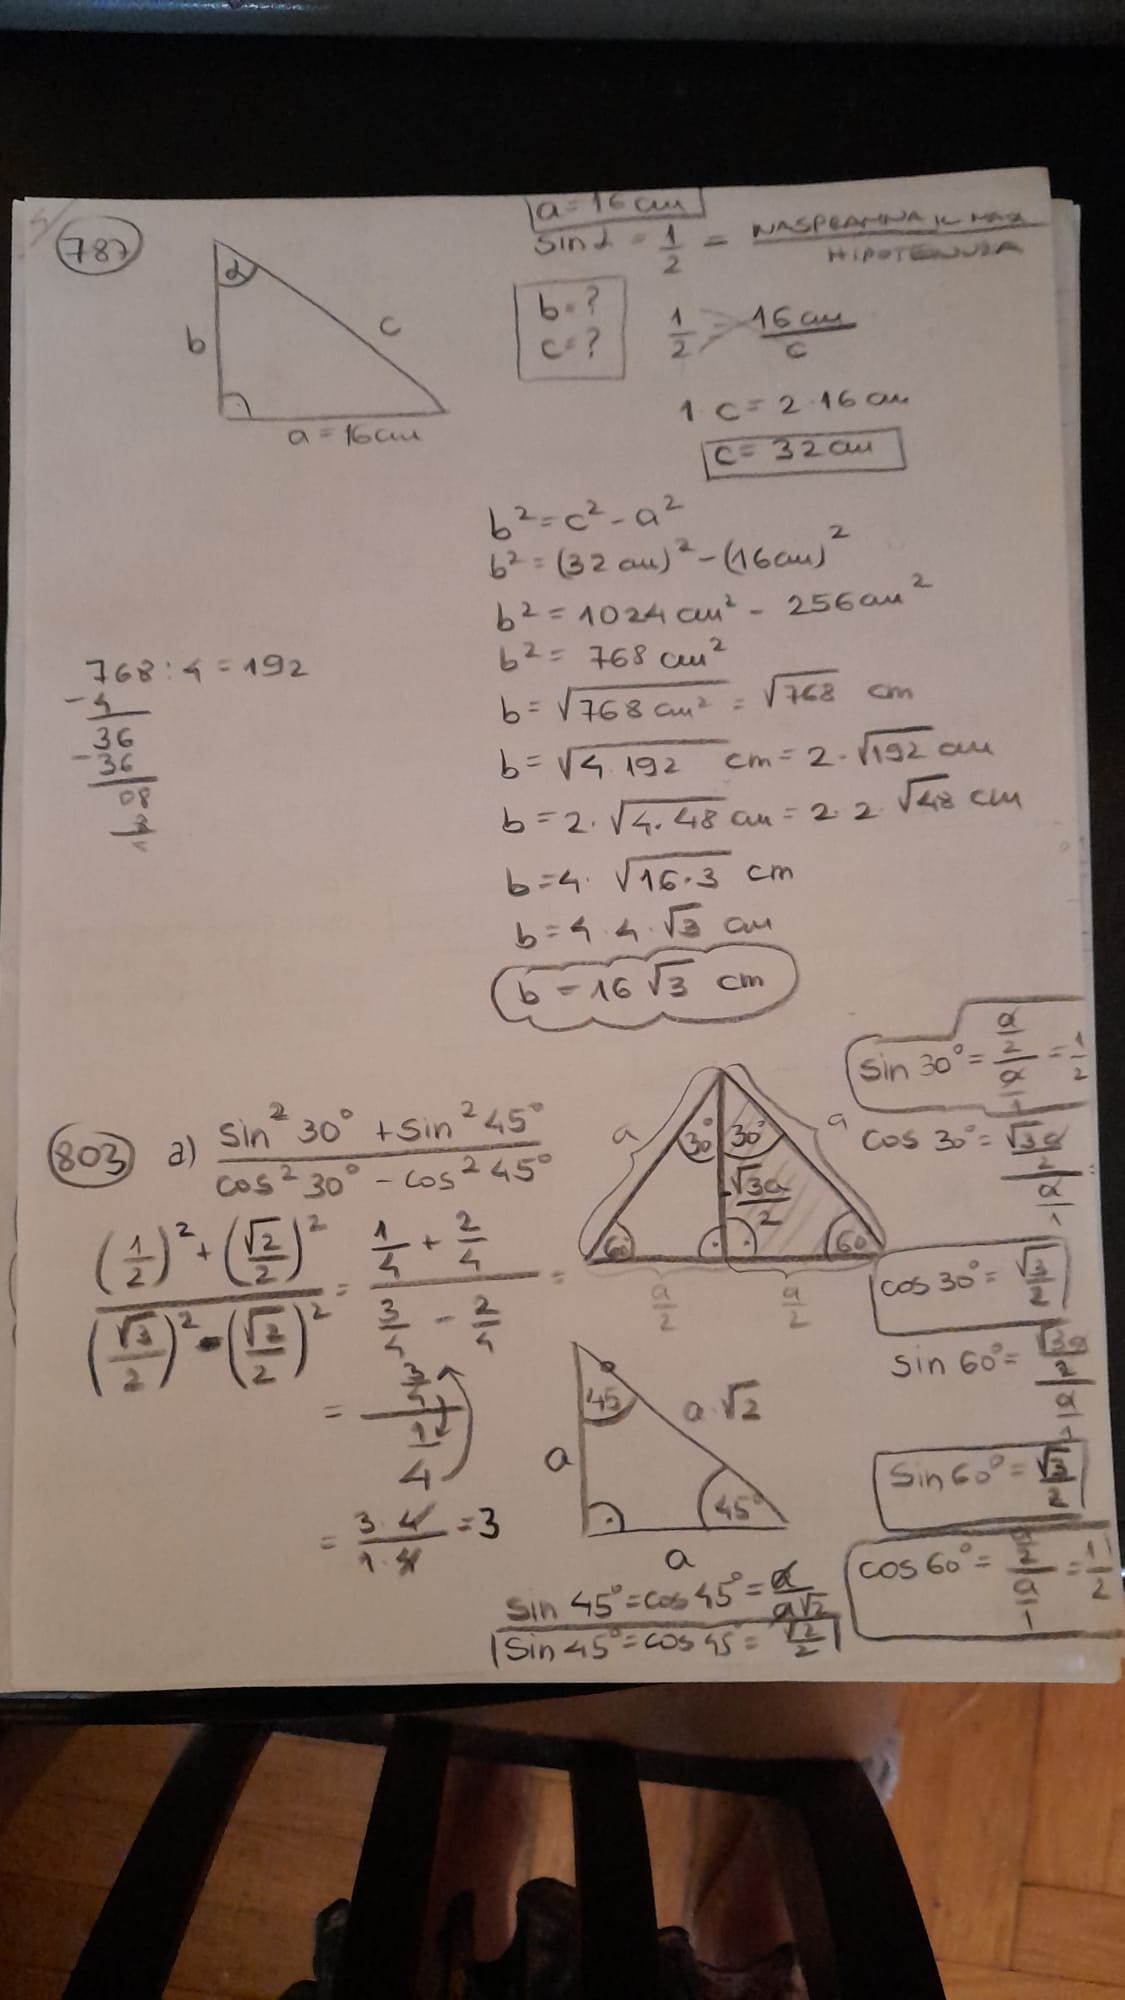 787
a = 16 cm
sin α = 1/2 = NASPRAMNA KATETA / HIPOTENUZA
α
b
c
a = 16 cm
b = ?
c = ?
1/2 = 16 cm / c
1 · c = 2 · 16 cm
c = 32 cm
b² = c² - a²
b² = (32 cm)² - (16 cm)²
b² = 1024 cm² - 256 cm²
b² = 768 cm²
b = √768 cm² = √768 cm
b = √4 · 192 cm = 2 · √192 cm
b = 2 · √4 · 48 cm = 2 · 2 √48 cm
b = 4 · √16 · 3 cm
b = 4 · 4 · √3 cm
b = 16 √3 cm
768 : 4 = 192
-4
36
-36
08
803 a) sin² 30° + sin² 45° / cos² 30° - cos² 45°
(1/2)² + (√2/2)² / (√3/2)² - (√2/2)² = 1/4 + 2/4 / 3/4 - 2/4 =
= 3/4 / 1/4
= 3 · 4 / 1 · 4 = 3
a
a
30° 30°
√3a/2
60 60
a/2 a/2
45
a · √2
a
45°
a
sin 45° = cos 45° = a / a√2
sin 45° = cos 45° = √2/2
sin 30° = a/2 / a/1 = 1/2
cos 30° = √3a/2 / a/1 =
cos 30° = √3/2
sin 60° = √3a/2 / a/1
sin 60° = √3/2
cos 60° = a/2 / a/1 = 1/2